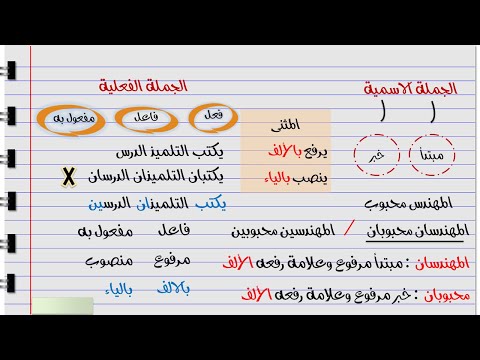 الجملة الاسمية
الجملة الفعلية
مبتدأ
خبر
فعل
فاعل
مفعول به
المثنى
يرفع بالالف
ينصب بالياء
يكتب التلميذ الدرس
يكتبان التلميذان الدرسان X
يكتب التلميذان الدرسين
فاعل مفعول به
مرفوع منصوب
بالالف بالياء
المهندس محبوب
المهندسان محبوبان / المهندسين محبوبين
المهندسان : مبتدأ مرفوع وعلامة رفعه الألف
محبوبان : خبر مرفوع وعلامة رفعه الألف